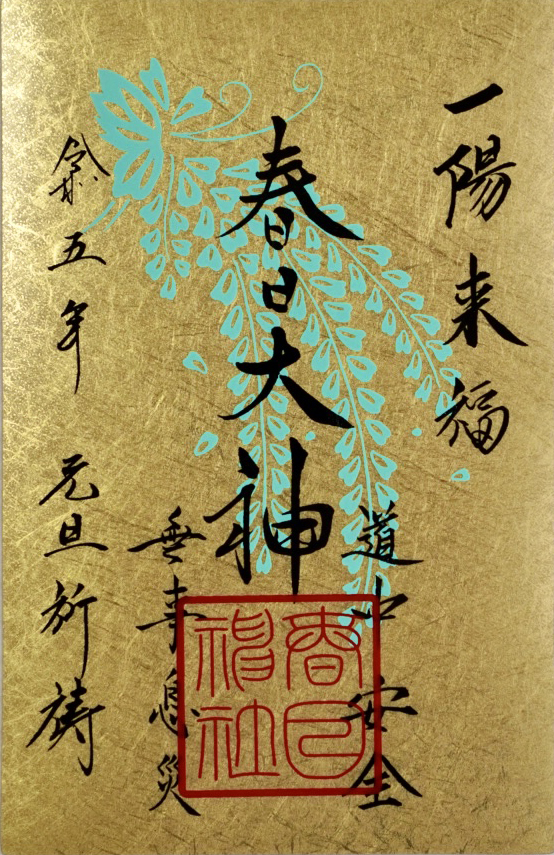 一陽来福
道中安全
春日大神
無事息災
令和五年 元旦祈祷
春日
神社